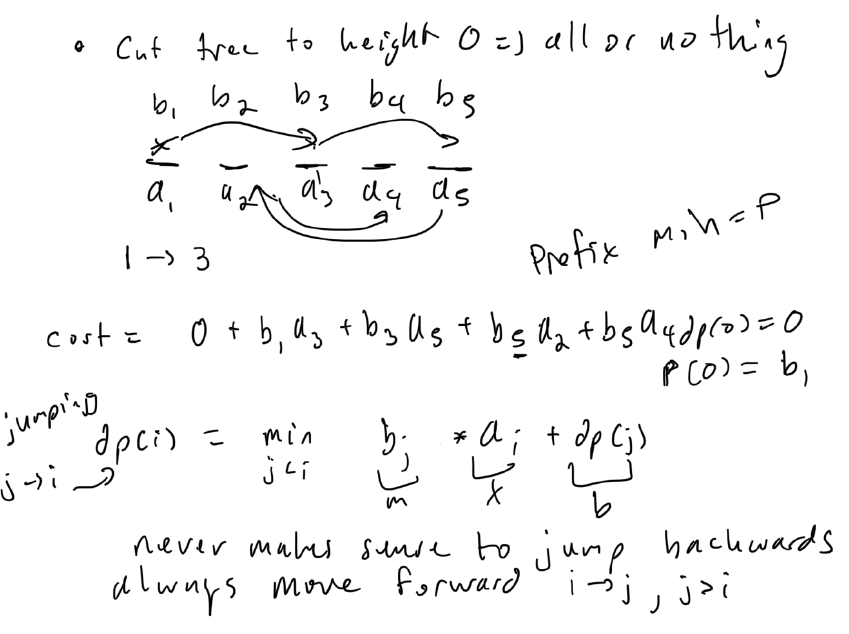 • Cut tree to height 0 => all or nothing
b₁ b₂ b₃ b₄ b₅
a₁ a₂ a₃ a₄ a₅
1 → 3
Prefix min = P
cost = 0 + b₁a₃ + b₃a₅ + b₅a₂ + b₅a₄
dp(0) = 0
P(0) = b₁
jumping
j → i
dp(i) = min b_j * a_i + dp(j)
j<i
m x b
never makes sense to jump backwards
always move forward i → j, j > i